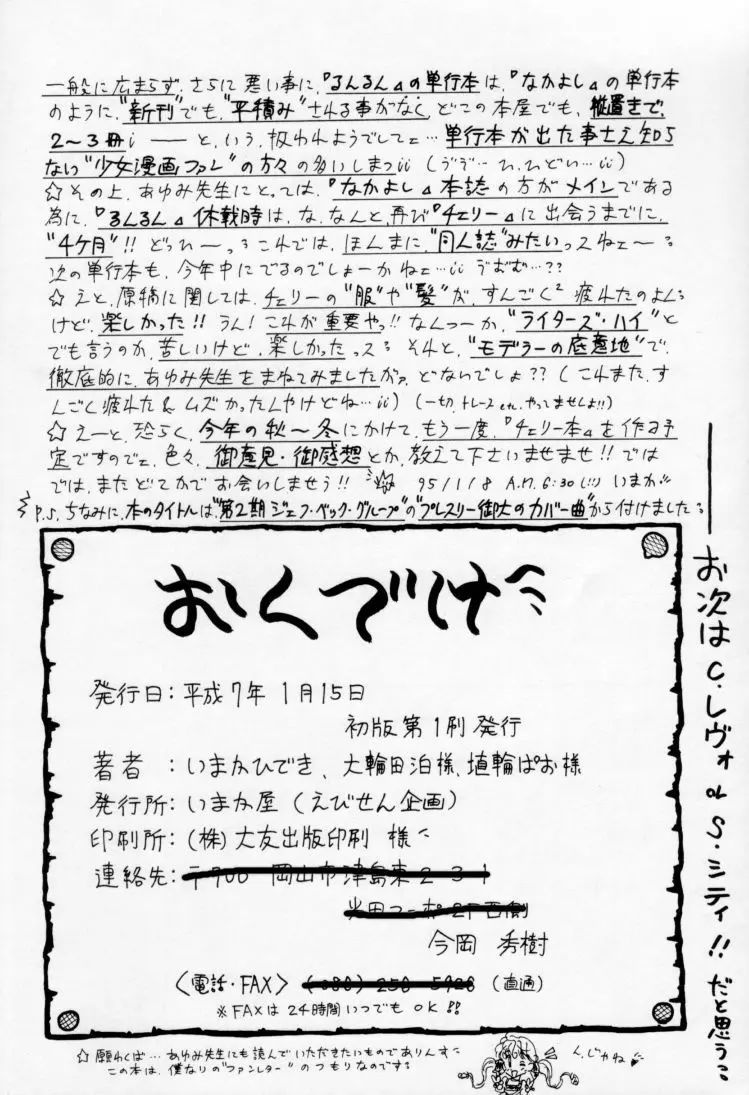 一般に広まらず、さらに悪い事に、『るんるん』の単行本は、『なかよし』の単行本
のように、"新刊"でも、"平積み"される事がなく、どこの本屋でも、縦置きで、
2〜3冊 ―― と、いう、扱われようでしてェ…単行本が出た事さえ知ら
ない"少女漫画ファン"の方々の多いしまつ (ひ、ひどい…)
☆その上、あゆみ先生にとっては、『なかよし』本誌の方がメインである
為に、『るんるん』休載時は、な、なんと、再び『チェリー』に出会うまでに、
"4ケ月"!! どっれーっ、これでは、ほんまに、"同人誌"みたいっスねェ〜
次の単行本も、今年中にでるのでしょーかねェ… うおむ…??
☆えと、原稿に関しては、チェリーの"服"や"髪"が、すんごく² 疲れたのよん
けど、楽しかった!! うん! これが重要やっ!! なんつーか、"ライターズ・ハイ"と
でも言うのか、苦しいけど、楽しかったっス それと、"モデラーの底意地"で、
徹底的に、あゆみ先生をまねてみましたがァ、どないでしょ?? (これまた、す
んごく疲れた & ムズかったんやけどね…) (一切、トレース etc. やってませんよ!!)
☆えーと、恐らく、今年の秋〜冬にかけて、もう一度、『チェリー本』を作る予
定ですのでェ、色々、御意見・御感想とか、教えて下さいませませ!! では
では、またどこかでお会いしませう!! 95/1/8 A.M.6:30(!!) いまか
P.S.ちなみに、本のタイトルは、"第2期ジェフ・ベック・グループ"の"プレスリー御大のカバー曲"から付けました
おくづけ
発行日:平成7年1月15日
初版第1刷発行
著者 :いまかひでき、大輪田泊様、埴輪ぱお様
発行所:いまか屋(えびせん企画)
印刷所:(株)大友出版印刷 様
連絡先:〒700 岡山市津島東2 3 1
今岡 秀樹
〈電話・FAX〉 (直通)
※FAXは24時間いつでもOK!!
☆願わくば…あゆみ先生にも読んでいただきたいものでありんす
この本は、僕なりの"ファンレター"のつもりなのです
んじゃね
――お次はC.レヴォ or S.シティ!! だと思う